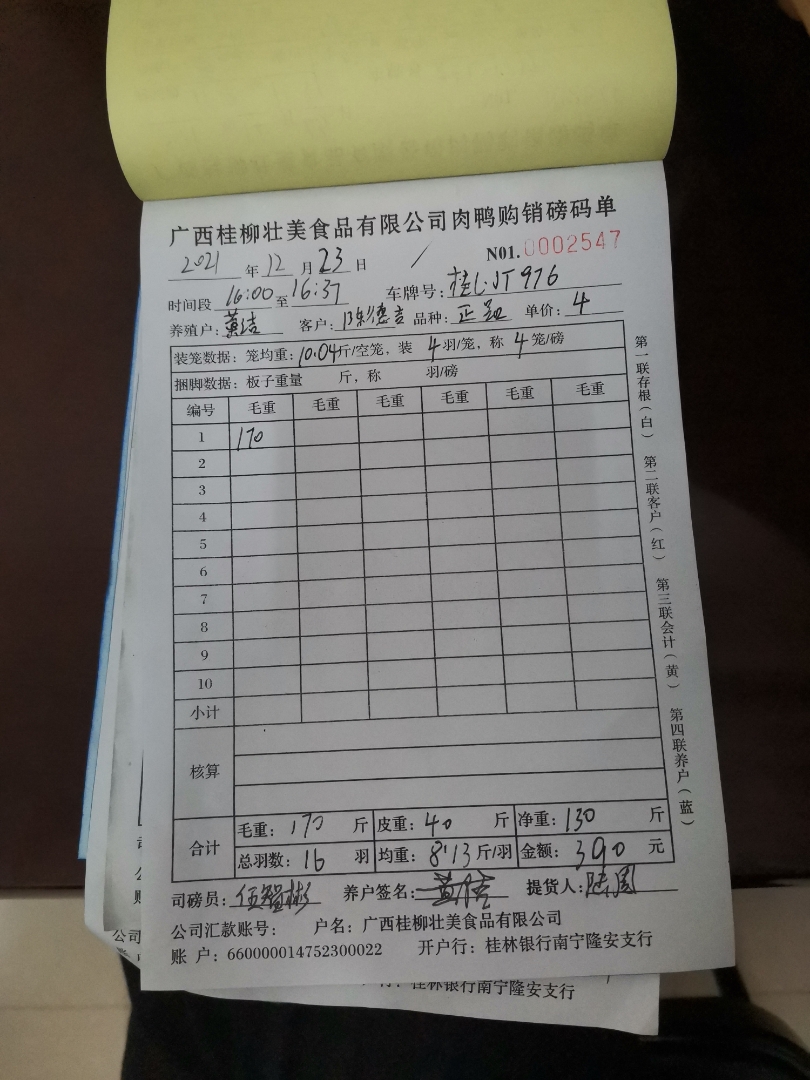 广西桂柳壮美食品有限公司肉鸭购销磅码单
2021年12月23日 / N01.0002547
时间段16:00至16:37 车牌号：桂L·JT976
养殖户：黄洁 客户：陈德吉 品种：正 单价：4
装笼数据：笼均重：10.04斤/空笼，装4羽/笼，称4笼/磅
捆脚数据：板子重量 斤，称 羽/磅
编号 毛重 毛重 毛重 毛重 毛重 毛重
1 170
2
3
4
5
6
7
8
9
10
小计
核算
合计 毛重：170斤 皮重：40斤 净重：130斤
总羽数：16羽 均重：8.13斤/羽 金额：390元
司磅员：伍智彬 养户签名： 提货人：
公司汇款账号： 户名：广西桂柳壮美食品有限公司
账户：660000014752300022 开户行：桂林银行南宁隆安支行
第一联存根（白） 第二联客户（红） 第三联会计（黄） 第四联养户（蓝）
司
公
账
公司
账
行：桂林银行南宁隆安支行